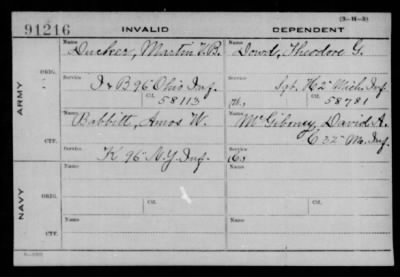 (3-H-3)
91216 INVALID DEPENDENT
Name Name
Ducker, Martin V.B. Dowd, Theodore G.
ORIG. Service Service
I & B 96 Ohio Inf. Sgt. K 2" Mich. Inf.
Ctf. 58113 Ctf. 58781
ARMY
Name Name
Babbitt, Amos W. McGiboney, David A.
CTF. Service
K 96" N.Y. Inf. C 32" Mo. Inf.
NAVY
Name Ctf. Name Ctf.
ORIG.
Name Name
CTF.